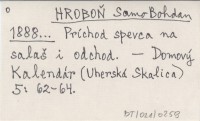 o
HROBOŇ Samo Bohdan
1888... Príchod spevca na
salaš i odchod. — Domový
Kalendár (Uherská Skalica)
5: 62-64.
DT/021/0259